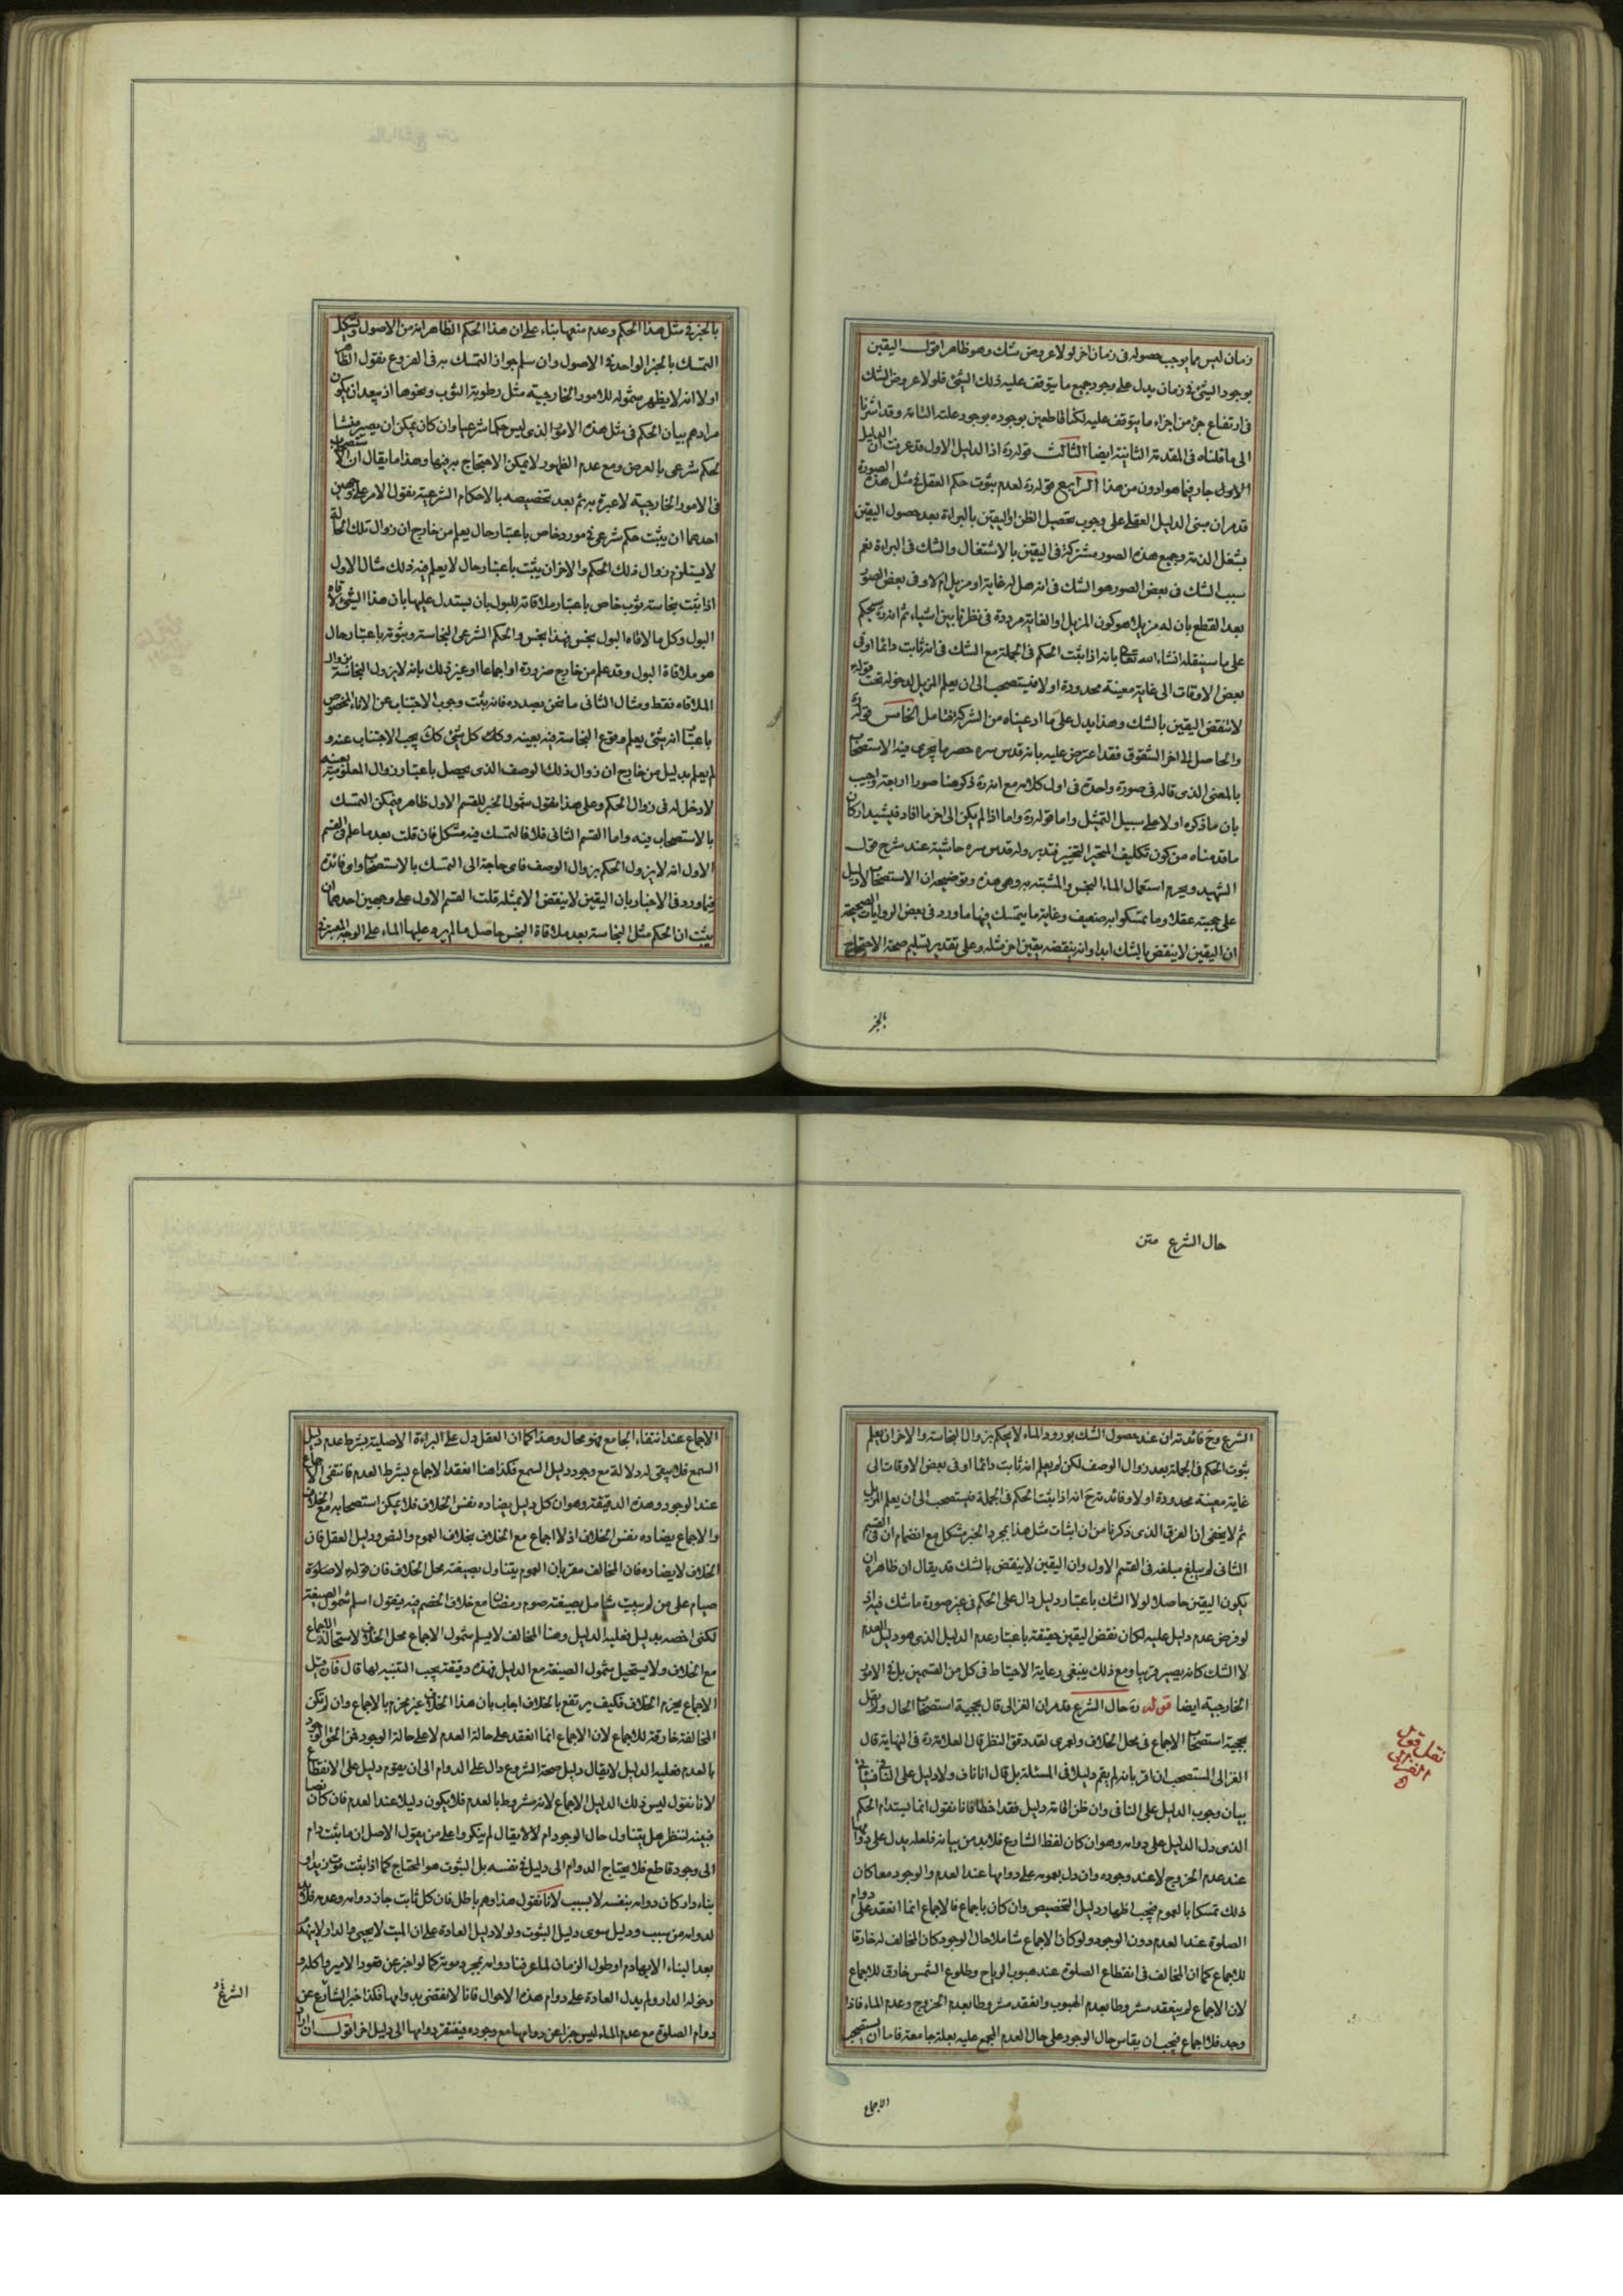 زمان ليس مما يوجب حصوله فى زمان اخر لولا عروض شك وهو ظاهر اقول اليقين
بوجود الشئ فى زمان يدل على وجود جميع ما يتوقف عليه ذلك الشئ فلولا عروض الشك
فى ارتفاع جزء من اجزاء ما يتوقف عليه لكنا قاطعين بوجوده بوجود علته التامة وقد اشرنا
الى ما قلناه فى المقدمة الثانية ايضا الثالث قوله ره اذ الدليل الاول قد عرفت ان الدليل
الاول جار فيما هو ادون من هذا الرابع قوله ره لعدم ثبوت حكم العقل فى مثل هذه الصورة
قد مر ان مبنى الدليل العقلى على وجوب تحصيل الظن او اليقين بالبراءة بعد حصول اليقين
بشغل الذمة وجميع هذه الصور مشتركة فى اليقين بالاشتغال والشك فى البراءة نعم
سبب الشك فى بعض الصور هو الشك فى انه هل له غاية او مزيل ام لا وفى بعض الصور
بعد القطع بان له مزيلا هو كون المزيل او الغاية مرددة فى نظرنا بين اشياء ثم انه ره سيحكم
على ما سينقله انشاء الله تعالى بانه اذا ثبت الحكم فى الجملة مع الشك فى انه ثابت دائما او فى
بعض الاوقات الى غاية معينة محدودة او لا فيستصحب الى ان يعلم المزيل لدخوله تحت قوله
لا تنقض اليقين بالشك وهذا يدل على ما ادعيناه من الشركة فتامل الخامس قوله ره
والحاصل الى اخر الشقوق فقد اعترض عليه بانه قدس سره حصر ما يجرى فيه الاستصحاب
بالمعنى الذى قاله فى صورة واحدة فى اول كلامه مع انه ره ذكر هنا صورا اربعة واجيب
بان ما ذكره اولا على سبيل التمثيل واما قوله ره واما اذا لم يكن الى اخر ما افاد فيشيد اركان
ما قدمناه من كون تكليف المتحير التخيير فتدبر وله قدس سره حاشية عند شرح قول
الشهيد ويحرم استعمال الماء النجس والمشتبه به وهى هذه وتوضيحه ان الاستصحاب لا دليل
على حجيته عقلا وما تمسكوا به ضعيف وغاية ما يتمسك فيها ما ورد فى بعض الروايات الصحيحة
ان اليقين لا ينقض بالشك ابدا وانه ينقضه يقين اخر مثله وعلى تقدير تسليم صحة الاحتجاج
بالخبر
بالخبر فى مثل هذا الحكم وعدم منعها بناء على ان هذا الحكم الظاهر انه من الاصول ويشكل
التمسك بالخبر الواحد فى الاصول وان سلم جواز التمسك به فى الفروع نقول الظاهر
اولا انه لا يظهر شموله للامور الخارجية مثل رطوبة الثوب ونحوها اذ يبعد ان يكون
مرادهم بيان الحكم فى مثل هذه الامور الذى ليس حكما شرعيا وان كان يمكن ان يصير منشأ
لحكم شرعى بالعرض ومع عدم الظهور لا يمكن الاحتجاج به فيها وهذا ما يقال ان الاستصحاب
فى الامور الخارجية لا عبرة به ثم بعد تخصيصه بالاحكام الشرعية نقول الامر على وجهين
احدهما ان يثبت حكم شرعى فى مورد خاص باعتبار حال يعلم من خارج ان زوال تلك الحالة
لا يستلزم زوال ذلك الحكم والاخر ان يثبت باعتبار حال لا يعلم فيه ذلك مثال الاول
اذا ثبت نجاسة ثوب خاص باعتبار ملاقاته للبول بان يستدل عليها بان هذا الشئ لاقاه
البول وكل ما لاقاه البول نجس فهذا نجس والحكم الشرعى النجاسة وثبوته باعتبار حال
هو ملاقاة البول وقد علم من خارج ضرورة او اجماعا او غير ذلك بانه لا يزول النجاسة بزوال
الملاقاه فقط ومثال الثانى ما نحن بصدده فانه ثبت وجوب الاجتناب عن الاناء المخصوص
باعتبار انه شئ يعلم وقوع النجاسة فيه بعينه وكلك كل شئ كك يجب الاجتناب عنه و
لم يعلم بدليل من خارج ان زوال ذلك الوصف الذى يحصل باعتبار زوال المعلومية بعينه
لا دخل له فى زوال الحكم وعلى هذا نقول شمول الخبر للقسم الاول ظاهر فيمكن التمسك
بالاستصحاب فيه واما القسم الثانى فلا فالتمسك فيه مشكل فان قلت بعد ما علم فى القسم
الاول انه لا يزول الحكم بزوال الوصف فاى حاجة الى التمسك بالاستصحاب واى فائدة
فيما ورد فى الاخبار بان اليقين لا ينقض الا بمثله قلت القسم الاول على وجهين احدهما ان
يثبت ان الحكم مثل النجاسة بعد ملاقاة النجس حاصل ما لم يرد عليها الماء على الوجه المعتبر فى
حال الشرع متن
الشرع وح فائدته ان عند حصول الشك بورود الماء لا يحكم بزوال النجاسة والاخر ان يعلم
ثبوت الحكم فى الجملة بعد زوال الوصف لكن لم يعلم انه ثابت دائما او فى بعض الاوقات الى
غاية معينة محدودة او لا وفائدته ح انه اذا ثبت الحكم فى الجملة فيستصحب الى ان يعلم المزيل
ثم لا يخفى ان الفرق الذى ذكرنا من ان اثبات مثل هذا بمجرد الخبر مشكل مع انضمام ان فى القسم
الثانى لم يبلغ مبلغه فى القسم الاول وان اليقين لا ينقض بالشك قد يقال ان ظاهره ان
يكون اليقين حاصلا لولا الشك باعتبار دليل دال على الحكم فى غير صورة ما شك فيه اذ
لو فرض عدم دليل عليه لكان نقض اليقين حقيقة باعتبار عدم الدليل الذى هو دليل العدم
لا الشك كانه يصير قريبا ومع ذلك ينبغى رعاية الاحتياط فى كل من القسمين بل فى الامور
الخارجية ايضا قوله ره حال الشرع قد مر ان الغزالى قال بحجية استصحاب الحال ولا يقل
بحجية استصحاب الاجماع فى محل الخلاف ولعمرى لقد دقق النظر قال العلامة ره فى النهاية قال
الغزالى المستصحب ان اقر بانه لم يقم دليلا فى المسئلة بل قال انا ناف ولا دليل على النافى فسياتى
بيان وجوب الدليل على النافى وان ظن اقامة دليل فقد اخطا فانا نقول انما يستدام الحكم
الذى دل الدليل على دوامه وهو ان كان لفظ الشارع فلا بد من بيانه فلعله يدل على دوامها
عند عدم الخروج لا عند وجوده وان دل بعمومه على دوامها عند العدم والوجود معا كان
ذلك تمسكا بالعموم فيجب اظهار دليل التخصيص وان كان باجماع فالاجماع انما انعقد على دوام
الصلوة عند العدم دون الوجود ولو كان الاجماع شاملا حال الوجود كان المخالف له خارقا
للاجماع كما ان المخالف فى انقطاع الصلوة عند هبوب الرياح وطلوع الشمس خارق للاجماع
لان الاجماع لم ينعقد مشروطا بعدم الهبوب وانعقد مشروطا بعدم الخروج وعدم الماء فاذا
وجد فلا اجماع فيجب ان يقاس حال الوجود على حال العدم المجمع عليه بعلة جامعة فاما ان يستصحب
نقل قول الغزالى
الاجماع
الاجماع عند انتفاء الجامع فهو محال وهذا كما ان العقل دل على البراءة الاصلية بشرط عدم دليل
السمع فلا يبقى له دلالة مع وجود دليل السمع فكذا هنا انعقد الاجماع بشرط العدم فانتفى الاجماع
عند الوجود وهذه الدقيقة وهو ان كل دليل يضاده نفس الخلاف فلا يمكن استصحابه مع الخلاف
والاجماع يضاده نفس الخلاف اذ لا اجماع مع الخلاف بخلاف العموم والنص ودليل العقل فان
الخلاف لا يضاده فان المخالف مقر بان العموم يتناول بصيغته محل الخلاف فان قوله لا صلوة
صيام على من لم يبيت شامل بصيغته صوم رمضان مع خلاف الخصم فيه فيقول اسلم شمول الصيغة
لكنى اخصه بدليل فعليه الدليل وهنا المخالف لا يسلم شمول الاجماع محل الخلاف لاستحالة الاجماع
مع الخلاف ولا يستحيل شمول الصيغة مع الدليل فهذه دقيقة يجب التنبيه لها قال فان قيل
الاجماع يحرم الخلاف فكيف يرتفع بالخلاف اجاب بان هذا الخلاف غير محرم بالاجماع وان لم تكن
المخالفة خارقة للاجماع لان الاجماع انما انعقد على حالة العدم لا على حالة الوجود فمن الحق الوجود
بالعدم فعليه الدليل لا يقال دليل صحة الشروع دال على الدوام الى ان يقوم دليل على الانقطاع
لانا نقول ليس ذلك الدليل الاجماع لانه مشروط بالعدم فلا يكون دليلا عند العدم فان كان نصا
فبينه لننظر هل يتناول حال الوجود ام لا لا يقال لم ينكروا على من يقول الاصل ان ما ثبت دام
الى وجود قاطع فلا يحتاج الدوام الى دليل فى نفسه بل الثبوت هو المحتاج كما اذا ثبت موت زيد او
بناء دار كان دوامه بنفسه لا بسبب لانا نقول هذا وهم باطل فان كل ثابت جاز دوامه وعدمه فلا بد
لدوامه من سبب ودليل سوى دليل الثبوت ولولا دليل العادة على ان الميت لا يحيى والدار لا ينهدم
بعد البناء الا بهادم او طول الزمان لما عرفنا دوامه بمجرد موته كما لو اخبر عن قعود الامير واكله و
دخوله الدار ولم يدل العادة على دوام هذه الاحوال فانا لا نقضى بدوامها فكذا خبر الشارع عن
دوام الصلوة مع عدم الماء ليس خبرا عن دوامها مع وجوده فيفتقر دوامها الى دليل اخر اقول ان اراد